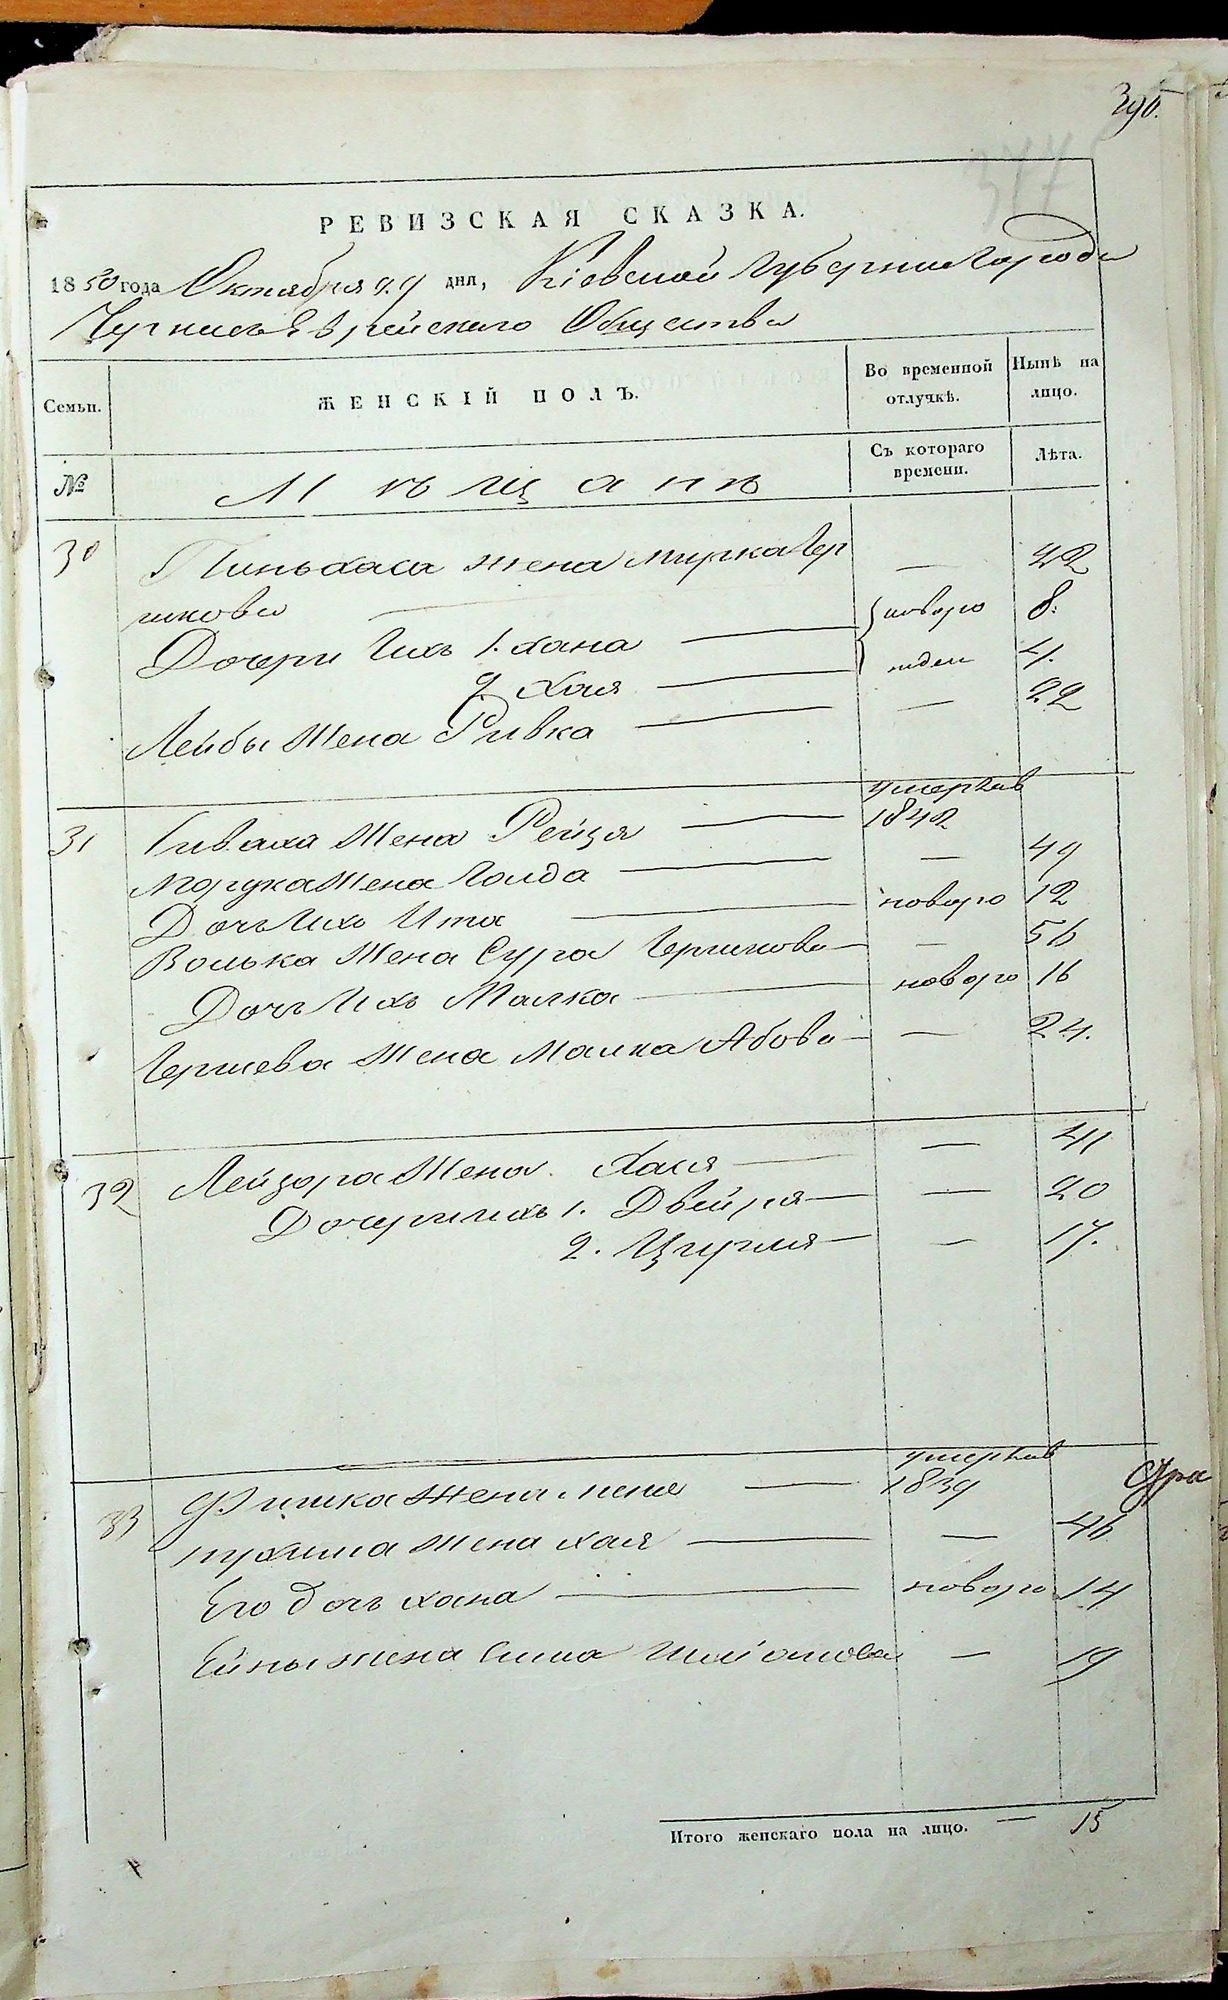 395.
377
РЕВИЗСКАЯ СКАЗКА.
1850 года Октября 27 дня, Кіевской Губернии Города
Еврейскаго Общества
Семьи.
ЖЕНСКІЙ ПОЛЪ.
Во временной отлучкѣ.
Нынѣ на лицо.
№
Мѣщанѣ
Съ котораго времени.
Лѣта.
30 Пинькаса жена Мирка Гер — 42
шкова
Дочери Ихъ 1. Хана — новоро 8.
2. Хая — жден 4.
Лейбы Жена Ривка — — 22
31 Жена Рейзя — умерла в 1842
Жена Голда — — 49
Дочь Ихъ Ита — новоро 12
Волька Жена Сура Гершкова — — 56
Дочь Ихъ Малка — новоро 16
Гершева Жена Малка Абова — — 24.
32 Лейзора Жена Хася — — 41
Дочери ихъ 1. Двейря — — 20
2. — — 17.
33 Фишка Жена — умерла в 1839
Жена Хая — — 46
Его дочь Хана — новоро 14
жена Сима — 19
Итого женскаго пола на лицо. — 15